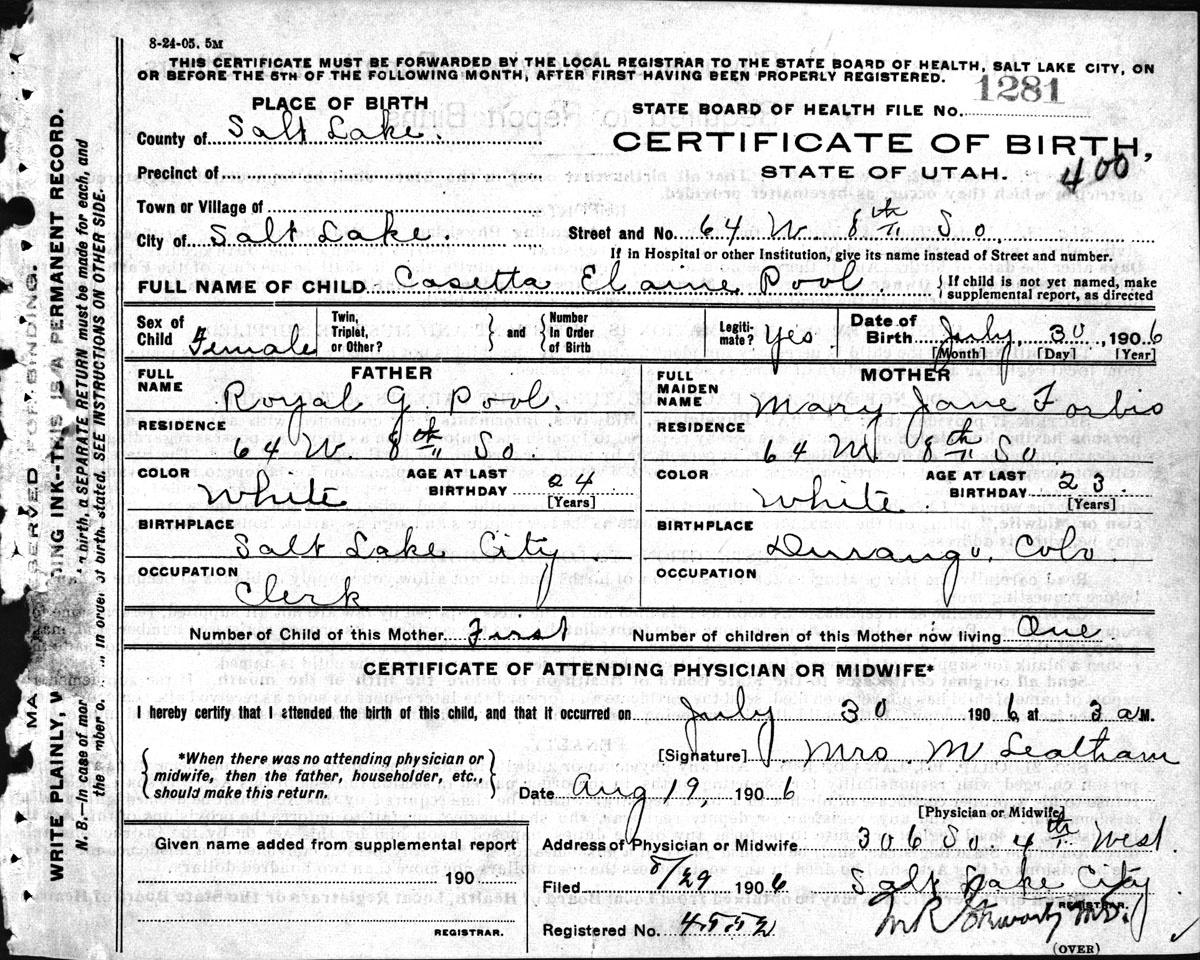 8-24-05. 5M
THIS CERTIFICATE MUST BE FORWARDED BY THE LOCAL REGISTRAR TO THE STATE BOARD OF HEALTH, SALT LAKE CITY, ON
OR BEFORE THE 5TH OF THE FOLLOWING MONTH, AFTER FIRST HAVING BEEN PROPERLY REGISTERED.
PLACE OF BIRTH
STATE BOARD OF HEALTH FILE No. 1281
County of Salt Lake.
CERTIFICATE OF BIRTH,
Precinct of
STATE OF UTAH.
400
Town or Village of
City of Salt Lake. Street and No. 64 W. 8th So.
If in Hospital or other Institution, give its name instead of Street and number.
FULL NAME OF CHILD Casetta Elaine Pool { If child is not yet named, make
supplemental report, as directed
Sex of Child Female
Twin, Triplet, or Other? } and { Number In Order of Birth
Legiti-mate? Yes.
Date of Birth July, 30, 1906
[Month] [Day] [Year]
FATHER
FULL NAME Royal G. Pool.
RESIDENCE
64 W. 8th So.
COLOR White
AGE AT LAST BIRTHDAY 24
[Years]
BIRTHPLACE
Salt Lake City
OCCUPATION
Clerk
MOTHER
FULL MAIDEN NAME Mary Jane Forbis
RESIDENCE
64 W 8th So.
COLOR White.
AGE AT LAST BIRTHDAY 23.
[Years]
BIRTHPLACE
Durango. Colo
OCCUPATION
Number of Child of this Mother First Number of children of this Mother now living One.
CERTIFICATE OF ATTENDING PHYSICIAN OR MIDWIFE*
I hereby certify that I attended the birth of this child, and that it occurred on July 30 1906 at 3 a M.
{ *When there was no attending physician or
midwife, then the father, householder, etc.,
should make this return. }
[Signature] Mrs. M Lealtham
Date Aug 19, 1906
[Physician or Midwife]
Address of Physician or Midwife. 306 So. 4th West.
Salt Lake City
Filed 8/29 1906
REGISTRAR.
Registered No. 4552
(OVER)
Given name added from supplemental report
190
REGISTRAR.
MARGIN RESERVED FOR BINDING.
WRITE PLAINLY, WITH UNFADING INK—THIS IS A PERMANENT RECORD.
N.B.—In case of more than one child at a birth, a SEPARATE RETURN must be made for each, and
the number of each, in order of birth, stated. SEE INSTRUCTIONS ON OTHER SIDE.